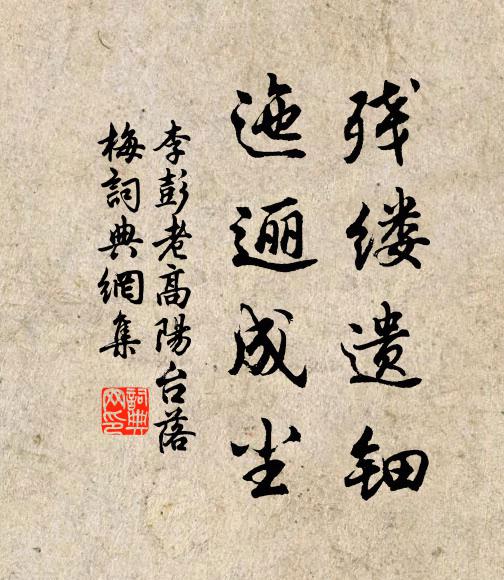 残缕遗钿
迤逦成尘
李彭老高陽台落
梅詞典網集
詞典网印